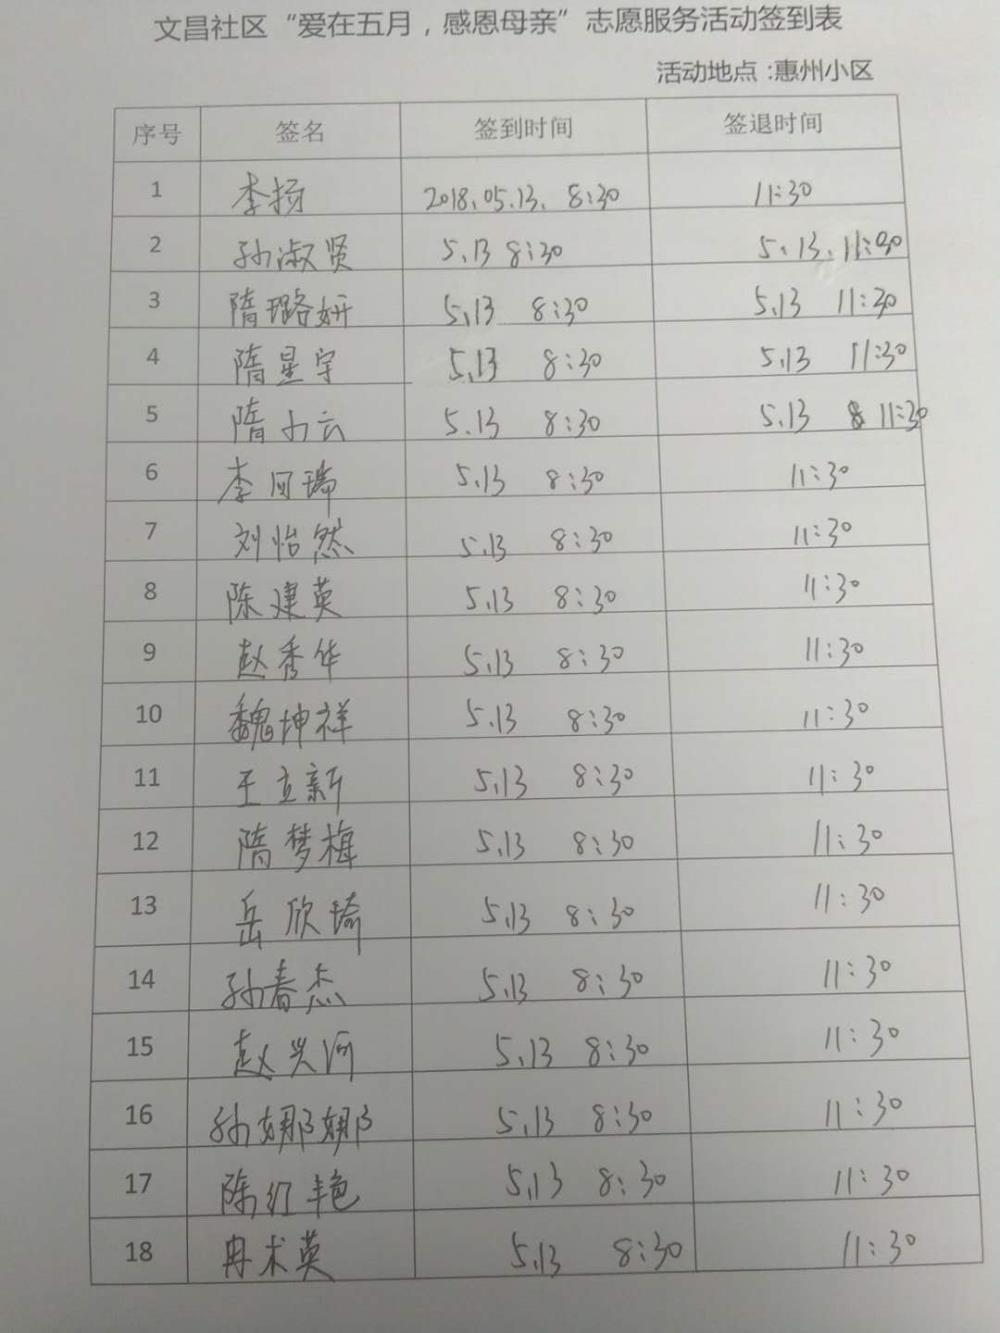 文昌社区“爱在五月，感恩母亲”志愿服务活动签到表
活动地点:惠州小区
序号 签名 签到时间 签退时间
1 李扬 2018.05.13. 8:30 11:30
2 孙淑贤 5.13 8:30 5.13.11:30
3 隋璐妍 5.13 8:30 5.13 11:30
4 隋星宇 5.13 8:30 5.13 11:30
5 隋小云 5.13 8:30 5.13 11:30
6 李同瑞 5.13 8:30 11:30
7 刘怡然 5.13 8:30 11:30
8 陈建英 5.13 8:30 11:30
9 赵秀华 5.13 8:30 11:30
10 魏坤祥 5.13 8:30 11:30
11 王立新 5.13 8:30 11:30
12 隋梦梅 5.13 8:30 11:30
13 岳欣琦 5.13 8:30 11:30
14 孙春杰 5.13 8:30 11:30
15 赵兴河 5.13 8:30 11:30
16 孙娜娜 5.13 8:30 11:30
17 陈红艳 5.13 8:30 11:30
18 冉术英 5.13 8:30 11:30